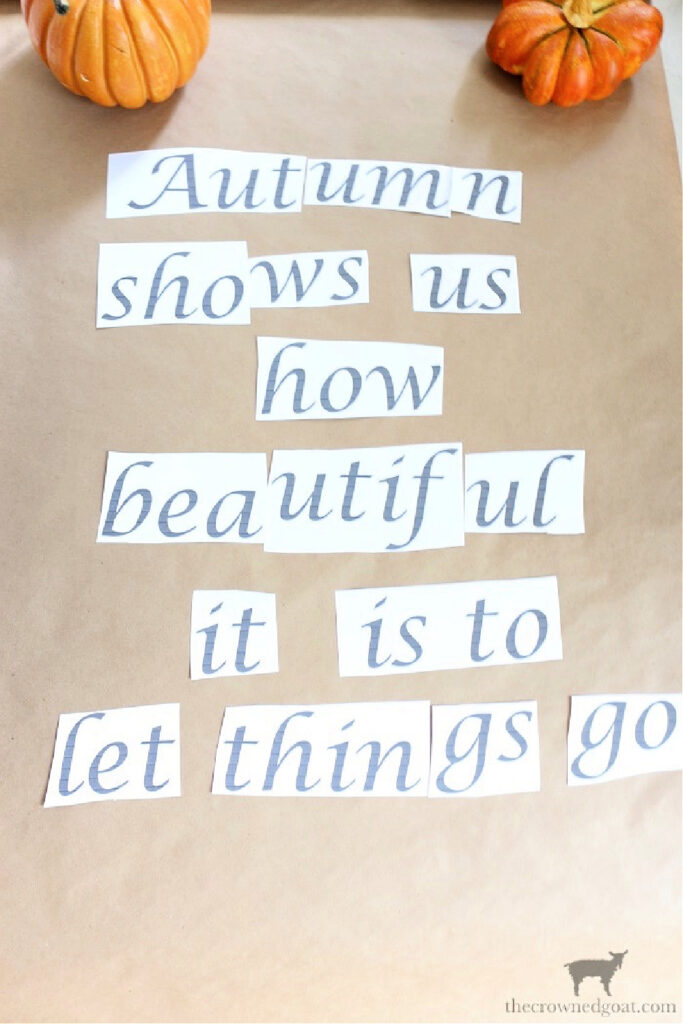 Autumn
shows us
how
beautiful
it is to
let things go
thecrownedgoat.com